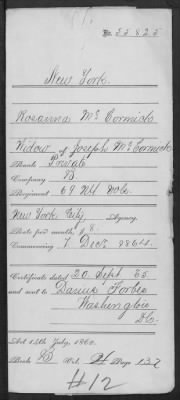 No. 55825
New York.
Rosanna McCormick
Widow of Joseph McCormick
Rank Private
Company B
Regiment 69 NY Vols.
New York City, Agency.
Rate per month, $8.
Commencing 7 Decr 1864.
Certificate dated 20 Sept 65.
and sent to Darius Forbes
Washington
D.C.
Act 14th July, 1862.
Book B Vol. Page 137
#12